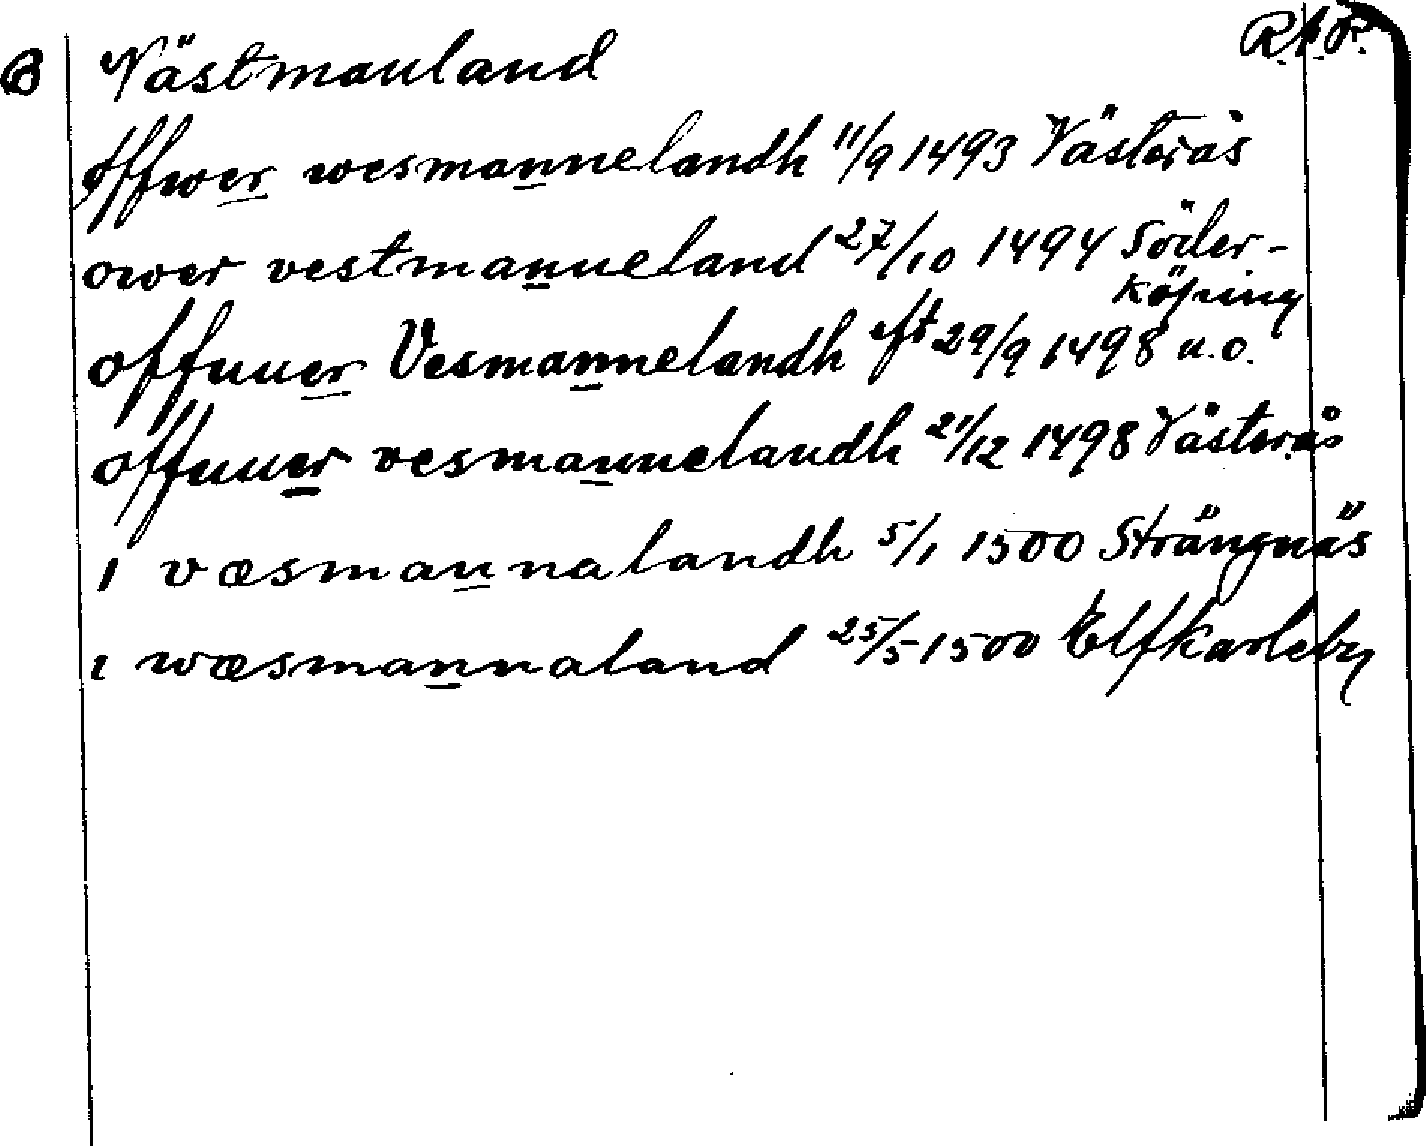 B Västmanland R.A.P.
öffwer wesmannelandh 11/9 1493 Västerås
ower vestmanneland 27/10 1494 Söder-
köping
offuuer Vesmannelandh eft 29/9 1498 u.o.
offuuer vesmannelandh 21/12 1498 Västerås
i væsmannalandh 5/1 1500 Strängnäs
i wæsmannaland 25/5 1500 Elfkarleby